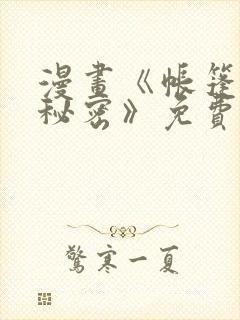 漫畫《帳篷
秘密》免費
驚寒一夏